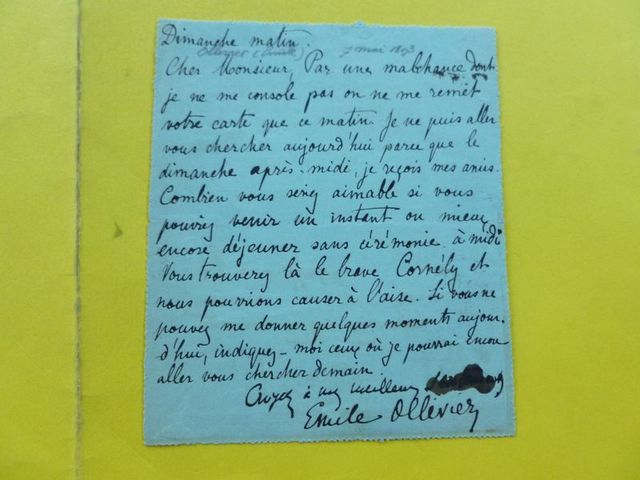 Dimanche matin.
Ollivier (Emile) 7 mai 1893
Cher Monsieur, Par une malchance dont
je ne me console pas on ne me remet
votre carte que ce matin. Je ne puis aller
vous chercher aujourd'hui parce que le
dimanche après-midi, je reçois mes amis.
Combien vous seriez aimable si vous
pouviez venir un instant ou mieux
encore déjeuner sans cérémonie à midi
Vous trouverez là le brave Cornély et
nous pourrions causer à l'aise. Si vous ne
pouvez me donner quelques moments aujour-
d'hui, indiquez-moi ceux où je pourrai encore
aller vous chercher demain.
Croyez à mes meilleurs
Emile Ollivier